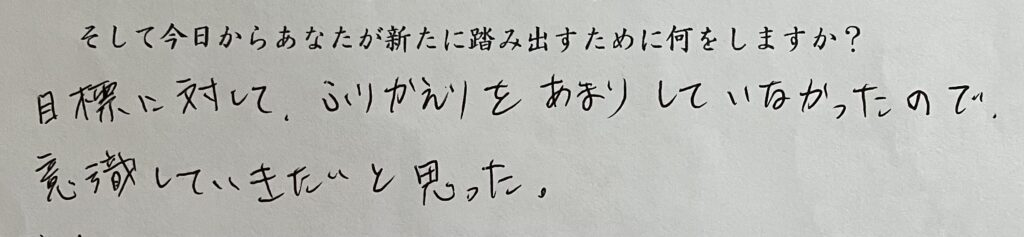 そして今日からあなたが新たに踏み出すために何をしますか？
目標に対して、ふりかえりをあまりしていなかったので、
意識していきたいと思った。